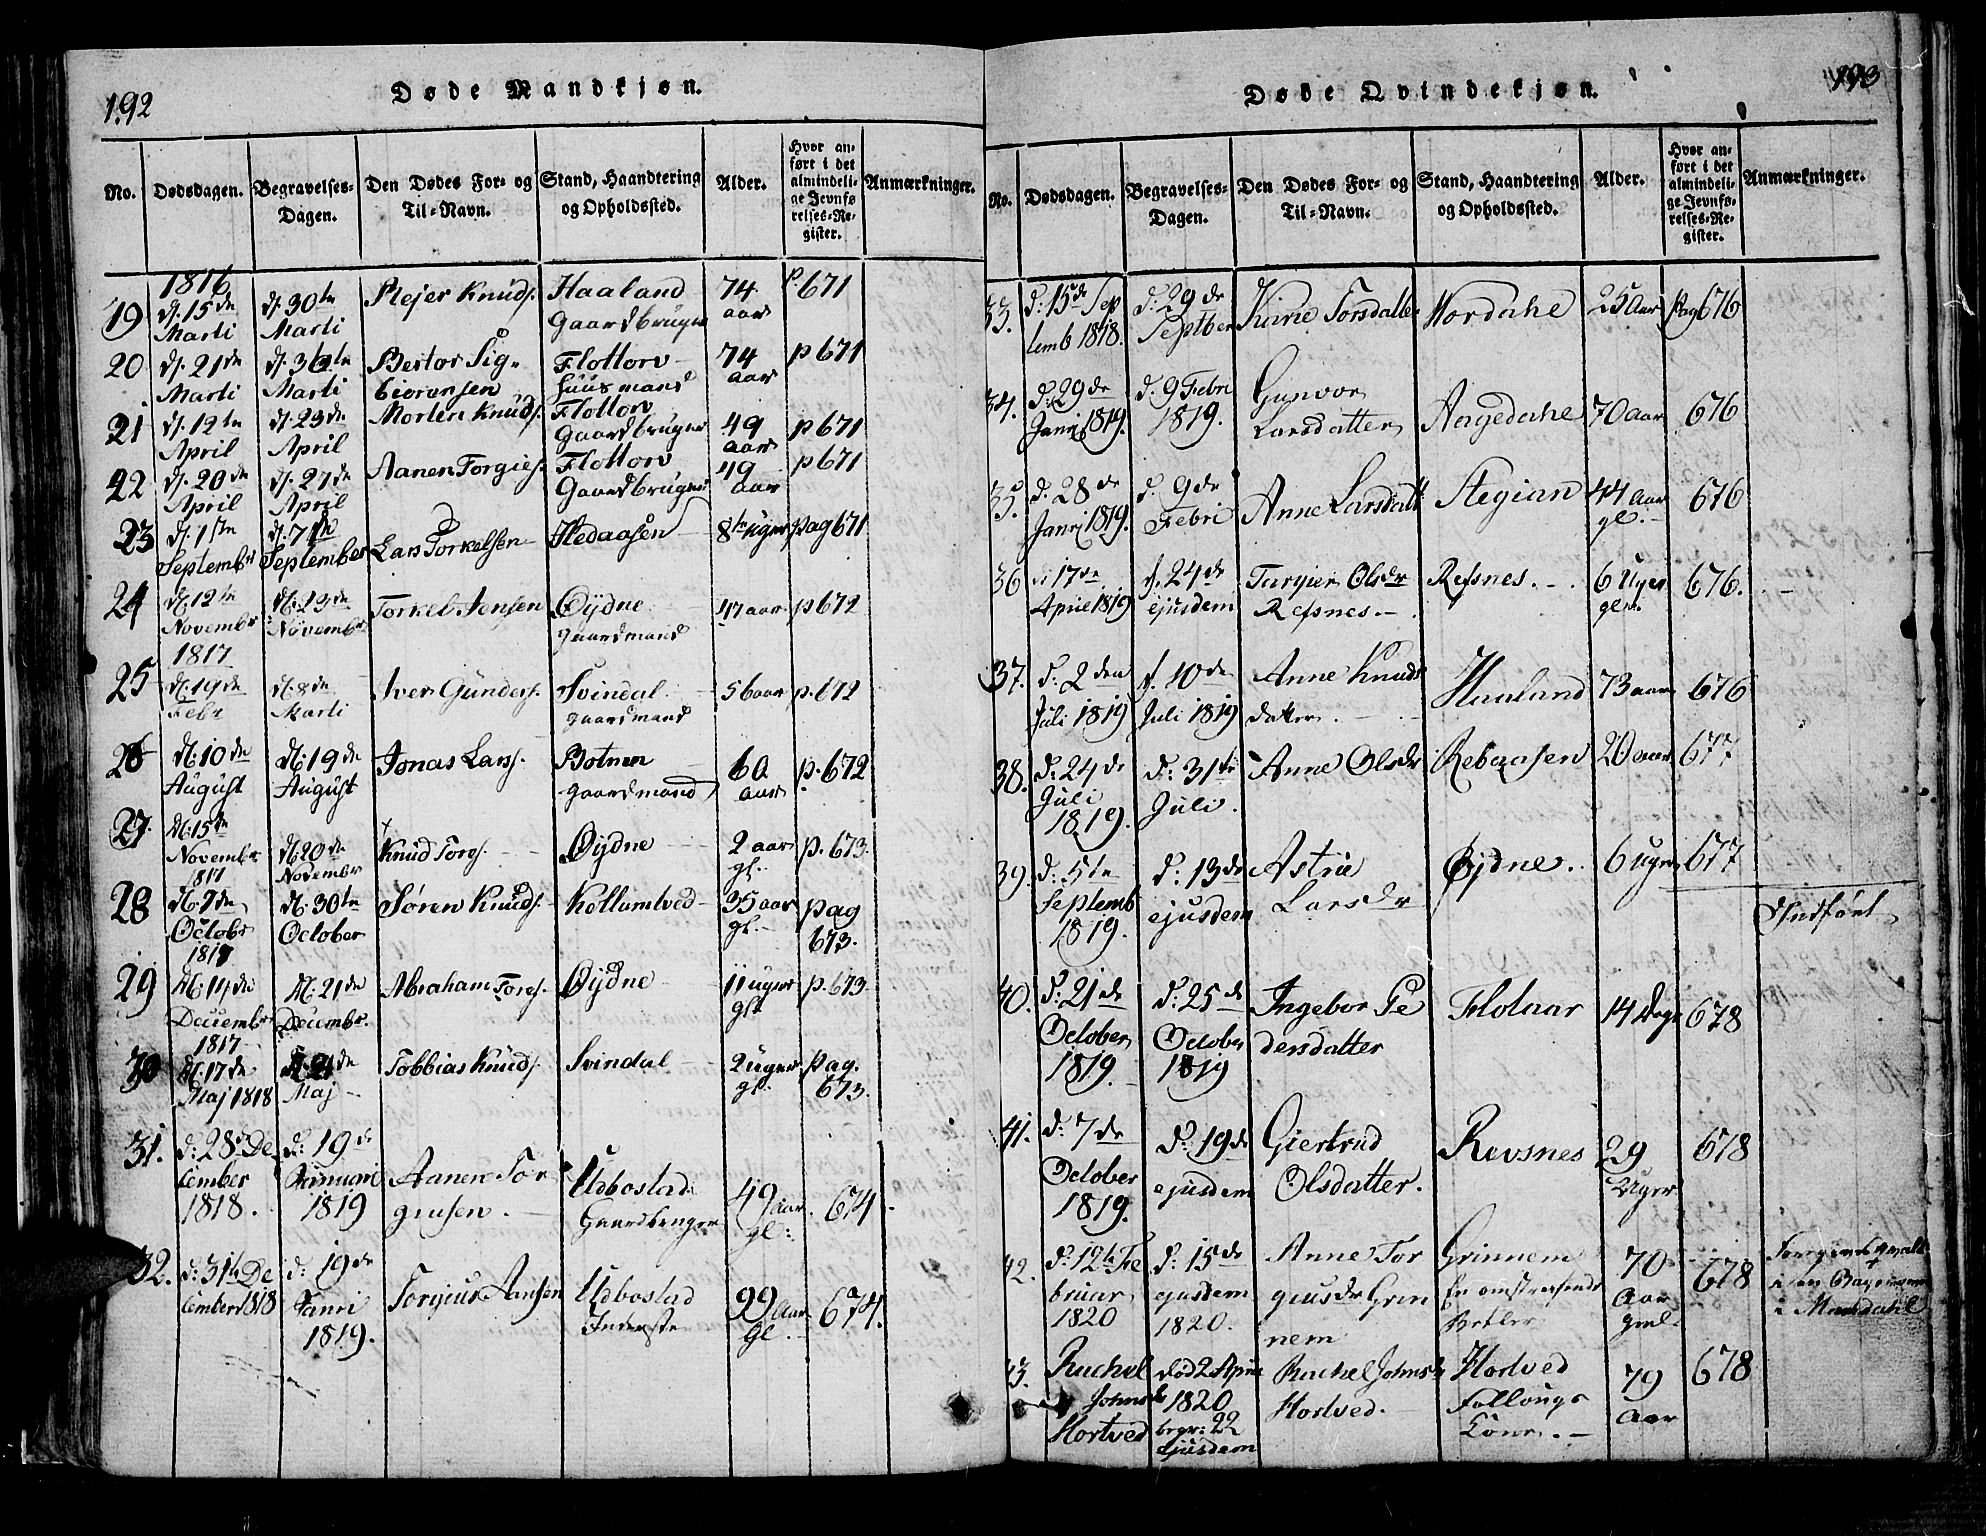 192
Døde Mandkjøn.
No. Dødsdagen. Begravelses-Dagen. Den Dødes For- og Til-Navn. Stand, Haandtering og Opholdssted. Alder. Hvor anført i det almindelige Jevnførelses-Register. Anmærkninger.
1816
19 d. 15de Marti d. 30te Marti Plejer Knuds. Haaland Gaardbruger 74 aar p. 671
20 d. 21de Marti Marti Flottorv Huusmand 74 aar p 671
21 d. 12te April d. 23de April Morten Knuds. Flottorv Gaardbruger 49 aar p 671
22 d. 20de April d. 27de April Aanen Torgies. Flottorv Gaardbruger 49 aar p 671
23 d. 1ste September d. 7de September Lars Torkelsen Hedaasen 8te uger pag 671
24 d. 12te Novembr d. 13de Novembr Torkel Jensen Øydne gaardmand 47 aar p. 672
1817
25 d. 19de Febr d. 8de Marti Iver Gunders. Svindal gaardmand 56 aar p. 672
26 d. 10de August d. 19de August Jonas Lars. Botnen gaardmand 60 aar p. 672
27. d. 15de Novembr 1817 d. 20de Novembr Knud Tores. Øydne 2 aar gl. p. 673
28 d. 7de Octobr 1817 d. 30te October Søren Knuds. Kollumtved 35 aar gl. pag 673.
29 d. 14de Decembr 1817 d. 21de Decembr. Abraham Tores. Øydne 11 uger gl. p. 673
30 d. 17de Maj 1818 Maj Tobbias Knuds. Svindal 2 uger gl. pag. 673.
31. d: 28de December 1818. d: 19de Januari 1819 Aanen Torgiusen. Udbostad Gaardbruger 49 Aar gl: 674.
32. d: 31te December 1818 d: 19de Janri 1819. Torgius Aansen Udbostad Inderste 99 Aar Gl. 674.
193
Døde Qvindekjøn.
No. Dødsdagen. Begravelses-Dagen. Den Dødes For- og Til-Navn. Stand, Haandtering og Opholdssted. Alder. Hvor anført i det almindelige Jevnførelses-Register. Anmærkninger.
33. d: 15de Septemb 1818. d: 29de Septber Karie Torsdatter Nordahe 25 Aar Pag 676
34. d: 29de Janrj 1819. d. 9 Febri 1819. Gunvor Larsdatter Aagedahe 70 aar 676
35. d. 28de Janrj 1819. d. 9de Febri Anne Larsdatt Stegian 44 Aar gl. 676
36 d. 17de April 1819 d. 24de ejusdem Targier Olsdr Refsnes. Refsnes. 6 Uger gl. 676.
37. d: 2den Juli 1819 d. 10de Juli 1819 Anne Knudsdatter. Haaland 73 aar 676
38. d: 24de Juli 1819. d: 31te Juli. Anne Olsdr Rebaasen 20 aar 677
39. d: 5te Septemb 1819. d: 13de ejusdem Astrie Larsdr Øjdne. 6 uger 677
Indført
40. d: 21de October 1819. d: 25de October 1819 Ingebor Pedersdatter Flotaar 14 Dage 678
41. d: 7de October 1819. d: 19de ejusdem Giertrud Olsdatter. Revsnes 29 Uger 678
42. d: 12te Februar 1820 d: 15de ejusdem 1820. Anne Torgiusdr Grinnem Grinnem En omstreifende 70 Aar gml. 678
43. Rachel Johnsdr Hortved død 2 April 1820 begr: 22 ejusdem Rachel Johnsdr Hortved. Hortved 79 Aar 678